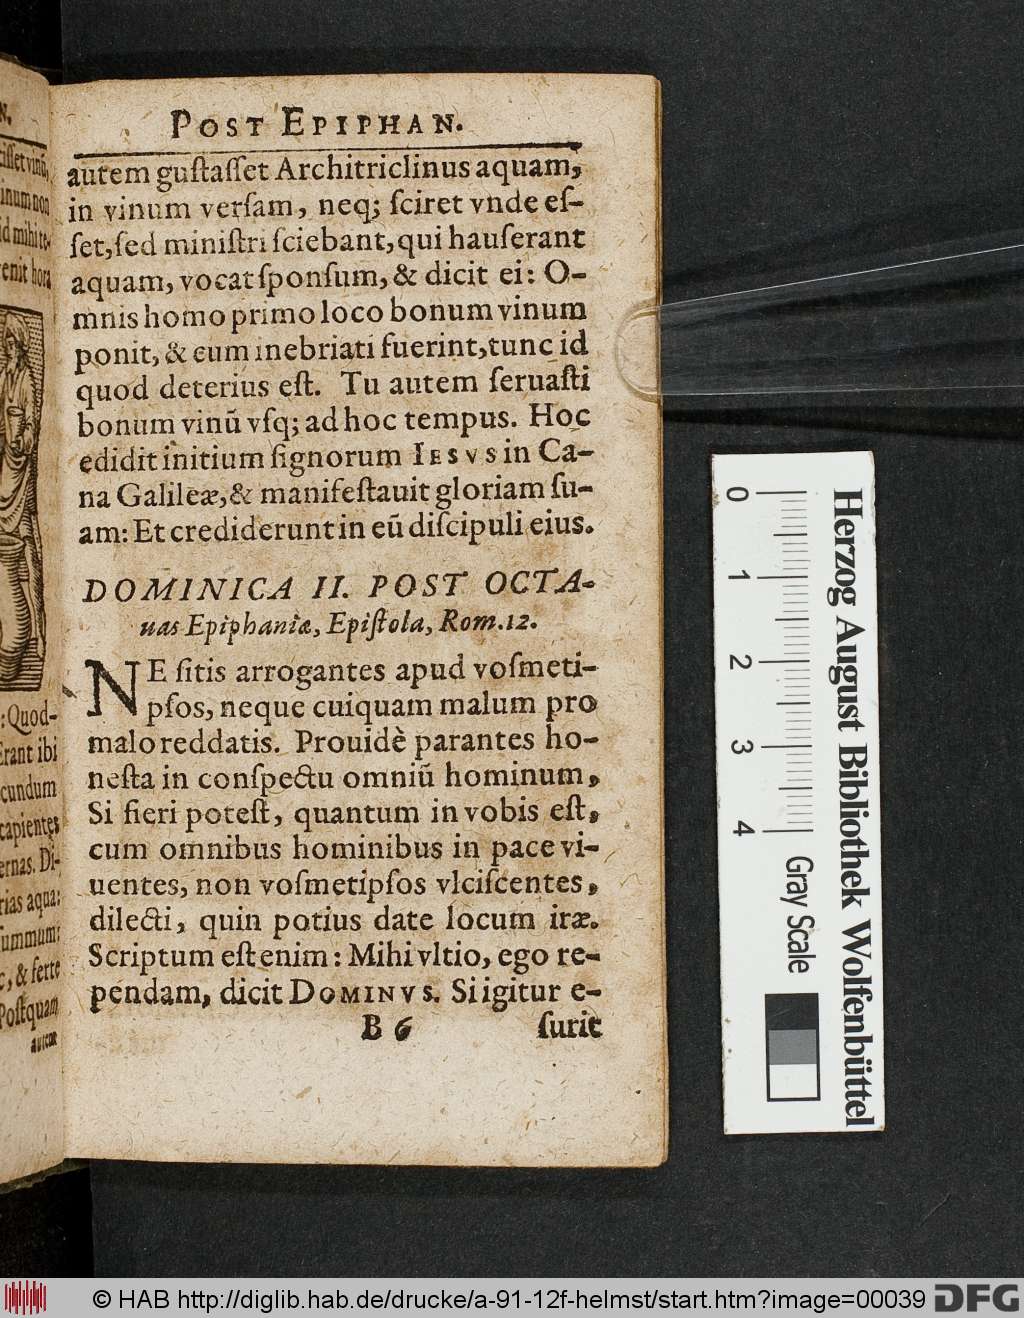 POST EPIPHAN.
autem guſtaſſet Architriclinus aquam,
in vinum verſam, neq; ſciret vnde eſ-
ſet, ſed miniſtri ſciebant, qui hauſerant
aquam, vocat ſponſum, & dicit ei: O-
mnis homo primo loco bonum vinum
ponit, & cum inebriati fuerint, tunc id
quod deterius eſt. Tu autem ſeruaſti
bonum vinū vſq; ad hoc tempus. Hoc
edidit initium ſignorum IESVS in Ca-
na Galileæ, & manifeſtauit gloriam ſu-
am: Et crediderunt in eū diſcipuli eius.
DOMINICA II. POST OCTA-
uas Epiphaniæ, Epiſtola, Rom. 12.
NE ſitis arrogantes apud voſmeti-
pſos, neque cuiquam malum pro
malo reddatis. Prouidè parantes ho-
neſta in conſpectu omniū hominum,
Si fieri poteſt, quantum in vobis eſt,
cum omnibus hominibus in pace vi-
uentes, non voſmetipſos vlciſcentes,
dilecti, quin potius date locum iræ.
Scriptum eſt enim: Mihi vltio, ego re-
pendam, dicit DOMINVS. Si igitur e-
B 6 ſurit
: Quod-
Erant ibi
cundum
capientes
ernas. Di-
rias aqua:
ſummum:
c, & ferte
Poſtquam
autem
enit hora
0 1 2 3 4 Gray Scale
Herzog August Bibliothek Wolfenbüttel
© HAB http://diglib.hab.de/drucke/a-91-12f-helmst/start.htm?image=00039
DFG